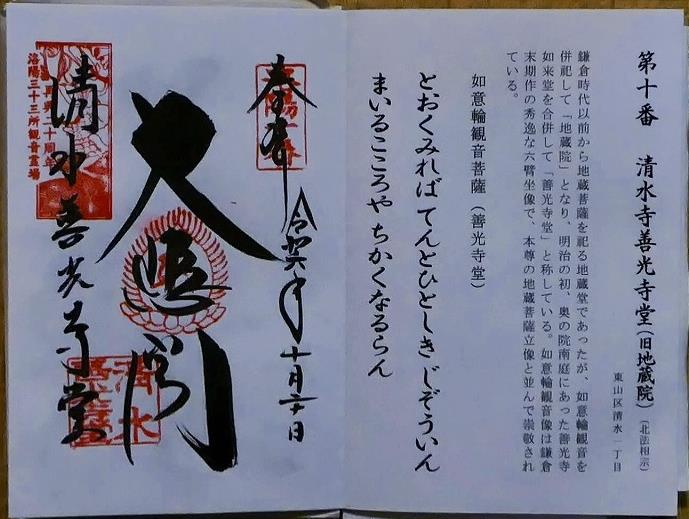 第十番　清水寺善光寺堂（旧地蔵院）（北法相宗）
東山区清水一丁目
鎌倉時代以前から地蔵菩薩を祀る地蔵堂であったが、如意輪観音を
併祀して「地蔵院」となり、明治の初、奥の院南庭にあった善光寺
如来堂を合併して「善光寺堂」と称している。如意輪観音像は鎌倉
末期作の秀逸な六臂坐像で、本尊の地蔵菩薩立像と並んで崇敬され
ている。
如意輪観音菩薩（善光寺堂）
とおくみればてんとひとしきじぞういん
まいるこころやちかくなるらん
奉拝
洛陽十番
令和六年十月二日
大悲閣
清水善光寺堂
十周年
洛陽三十三所観音霊場
清水